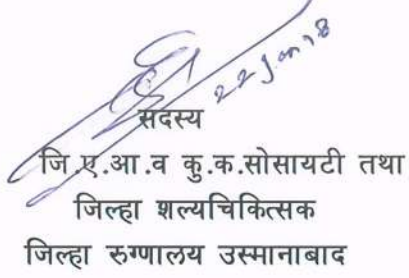 22 Jan 18
सदस्य
जि.ए.आ.व कु.क.सोसायटी तथा
जिल्हा शल्यचिकित्सक
जिल्हा रुग्णालय उस्मानाबाद